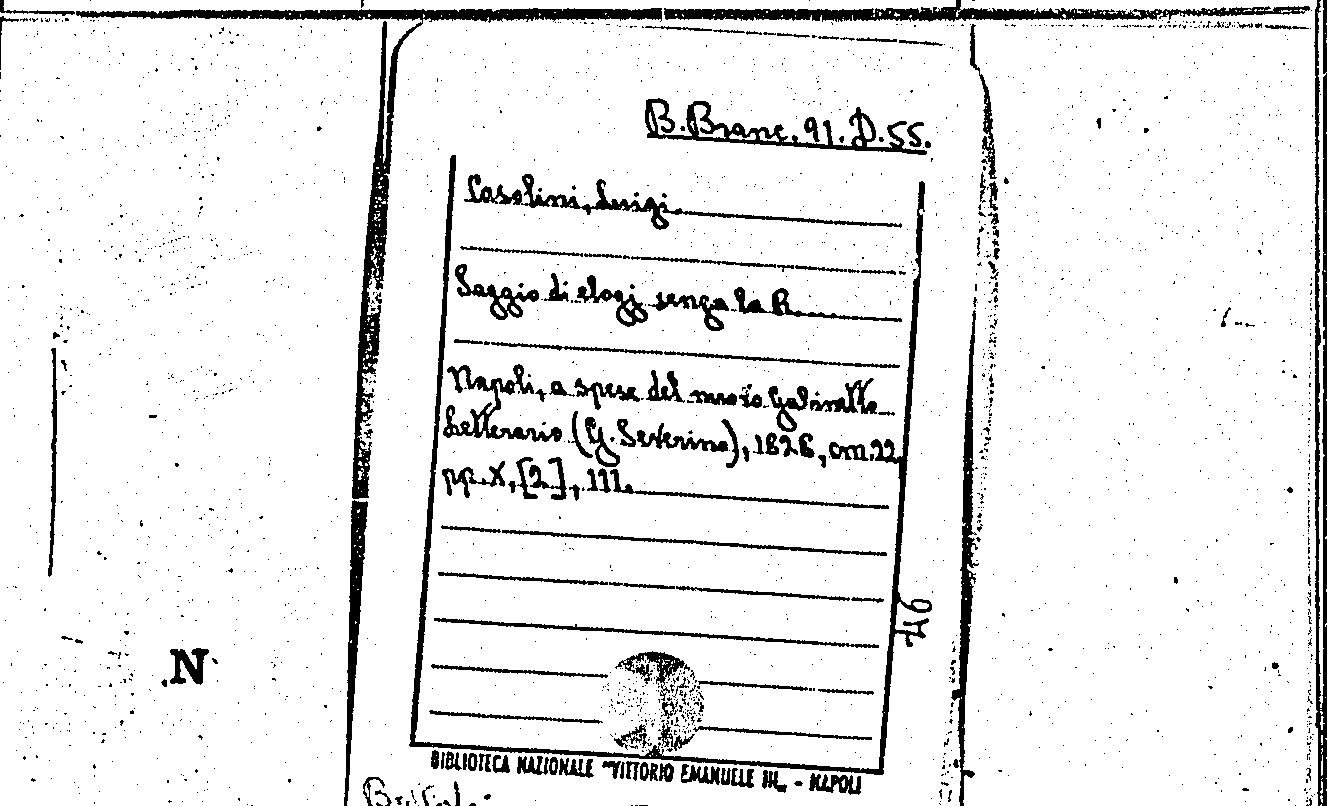 B. Branc. 91. D. 55.
Casolini, Luigi.
Saggio di elogi senza la R.
Napoli, a spese del nuovo Gabinetto
Letterario (G. Severino), 1826, cm. 22,
pp. X, [2], 111.
N
BIBLIOTECA NAZIONALE "VITTORIO EMANUELE III„ - NAPOLI